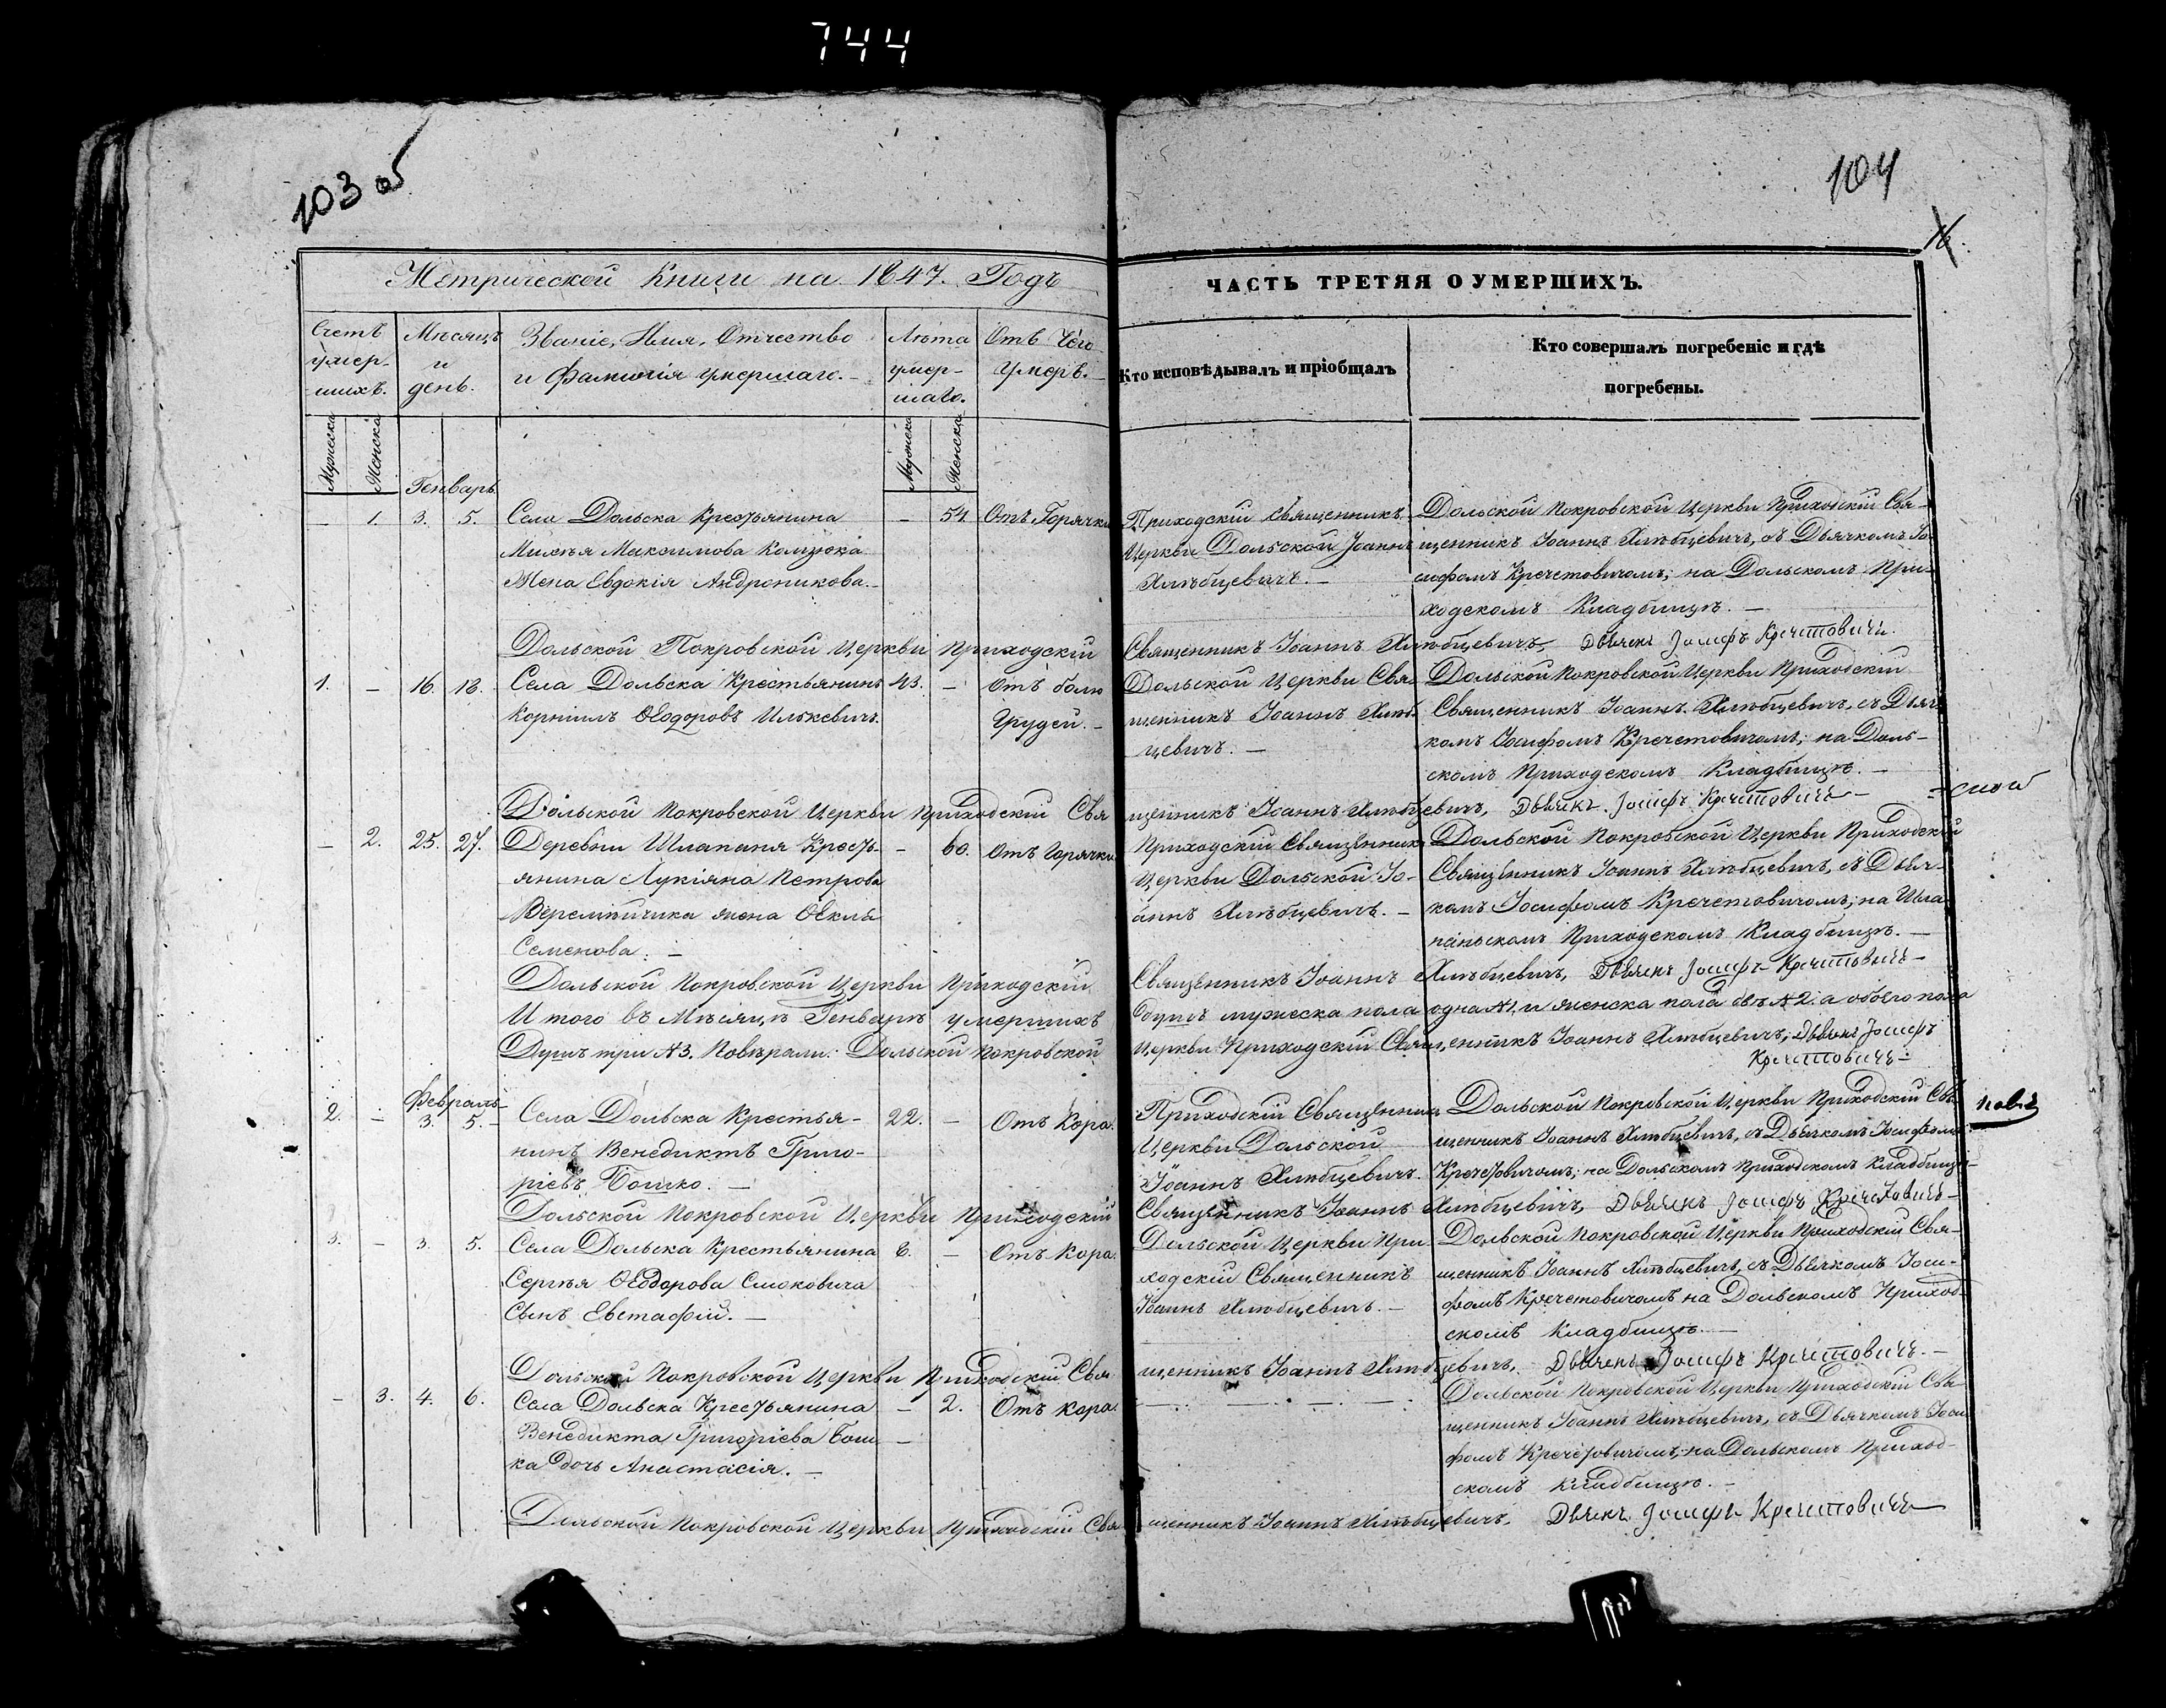 744
103 об
104
16.
Метрической Книги на 1847. Годъ
ЧАСТЬ ТРЕТЯЯ О УМЕРШИХЪ.
Счетъ умер-шихъ.
Мѣсяцъ и день.
Званіе, Имя, Отчество
и Фамилія умершаго.-
Лѣта умер-шаго.
Отъ Чего Умеръ.-
Кто исповѣдывалъ и пріобщалъ
Кто совершалъ погребеніе и гдѣ
погребены.
Мужеска
Женска
Мужеска
Женска
Генварь
- 1. 3. 5.
Села Дольска Крестьянина
Михея Максимова Комзюка
Жена Евдокія Андроникова.-
- 54. Отъ Горячки
Приходскій Священникъ
Церкви Дольской Іоаннъ
Хлѣбцевичъ.-
Дольской Покровской Церкви Приходскій Свя-
щенникъ Іоаннъ Хлѣбцевичъ, съ Дьячкомъ Іо-
сифомъ Кречетовичомъ; на Дольскомъ При-
ходскомъ Кладбищѣ.-
Дольской Покровской Церкви Приходскій Священникъ Іоаннъ Хлѣбцевичъ, Дьячекъ Іосифъ Кречетовичъ.
1. - 16. 18.
Села Дольска Крестьянинъ
Корнилъ Ѳеодоровъ Илькевичъ.
43. - Отъ боли
Грудей.-
Дольской Церкви Свя-
щенникъ Іоаннъ Хлѣб-
цевичъ.-
Дольской Покровской Церкви Приходскій
Священникъ Іоаннъ Хлѣбцевичъ, съ Дьяч-
комъ Іосифомъ Кречетовичомъ; на Доль-
скомъ Приходскомъ Кладбищѣ.-
Дольской Покровской Церкви Приходскій Священникъ Іоаннъ Хлѣбцевичъ, Дьячекъ Іосифъ Кречетовичъ-
- 2. 25. 27.
Деревни Шлапаня Кресть-
янина Лукіяна Петрова
Веремѣйчика жена Ѳекла
Семенова.-
- 60. Отъ Горячки
Приходскій Священникъ
Церкви Дольской Іо-
аннъ Хлѣбцевичъ.-
Дольской Покровской Церкви Приходскій
Священникъ Іоаннъ Хлѣбцевичъ, съ Дьяч-
комъ Іосифомъ Кречетовичомъ; на Шла-
паньскомъ Приходскомъ Кладбищѣ.-
Дольской Покровской Церкви Приходскій Священникъ Іоаннъ Хлѣбцевичъ, Дьячекъ Іосифъ Кречетовичъ-
Итого въ Мѣсяцѣ Генварѣ умершихъ душъ мужеска пола одна №1. и женска пола двѣ №2. а обоего пола
Душъ три №3. Повѣряли: Дольской Покровской Церкви Приходскій Священникъ Іоаннъ Хлѣбцевичъ, Дьячекъ Іосифъ
Кречетовичъ-
Февраль
2. - 3. 5.
Села Дольска Крестья-
нинъ Венедиктъ Григо-
ріевъ Бошко.-
22. - Отъ Кора.
Приходскій Священникъ
Церкви Дольской
Іоаннъ Хлѣбцевичъ.
Дольской Покровской Церкви Приходскій Свя-
щенникъ Іоаннъ Хлѣбцевичъ, съ Дьячкомъ Іосифомъ
Кречетовичомъ; на Дольскомъ Приходскомъ Кладбищѣ-
Дольской Покровской Церкви Приходскій Священникъ Іоаннъ Хлѣбцевичъ, Дьячекъ Іосифъ Кречетовичъ-
3. - 3. 5.
Села Дольска Крестьянина
Сергѣя Ѳеодорова Смоковича
Сынъ Евстафій.-
8. - Отъ Кора.
Дольской Церкви При-
ходскій Священникъ
Іоаннъ Хлѣбцевичъ.-
Дольской Покровской Церкви Приходскій Свя-
щенникъ Іоаннъ Хлѣбцевичъ, съ Дьячкомъ Іоси-
фомъ Кречетовичомъ на Дольскомъ Приход-
скомъ Кладбищѣ.-
Дольской Покровской Церкви Приходскій Священникъ Іоаннъ Хлѣбцевичъ, Дьячекъ Іосифъ Кречетовичъ.-
- 3. 4. 6.
Села Дольска Крестьянина
Венедикта Григоріева Бош-
ка дочь Анастасія.-
- 2. Отъ кора.
Дольской Покровской Церкви Приходскій Свя-
щенникъ Іоаннъ Хлѣбцевичъ, съ Дьячкомъ Іоси-
фомъ Кречетовичомъ; на Дольскомъ Приход-
скомъ Кладбищѣ.-
Дольской Покровской Церкви Приходскій Священникъ Іоаннъ Хлѣбцевичъ, Дьячекъ Іосифъ Кречетовичъ